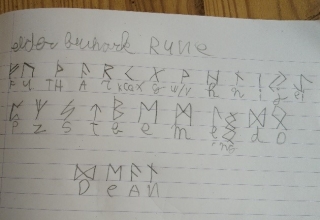 elder futhark RUNE
ᚠ ᚢ ᚦ ᚨ ᚱ ᚲ ᚷ ᚹ ᚺ ᚾ ᛁ ᛃ ᛇ
F U TH A R W/V H N I
ᛈ ᛉ ᛋ ᛏ ᛒ ᛖ ᛗ ᛚ ᛜ ᛞ ᛟ
P Z S T B e M L ng d O
ᛞ ᛖ ᚨ ᚾ
D e A N